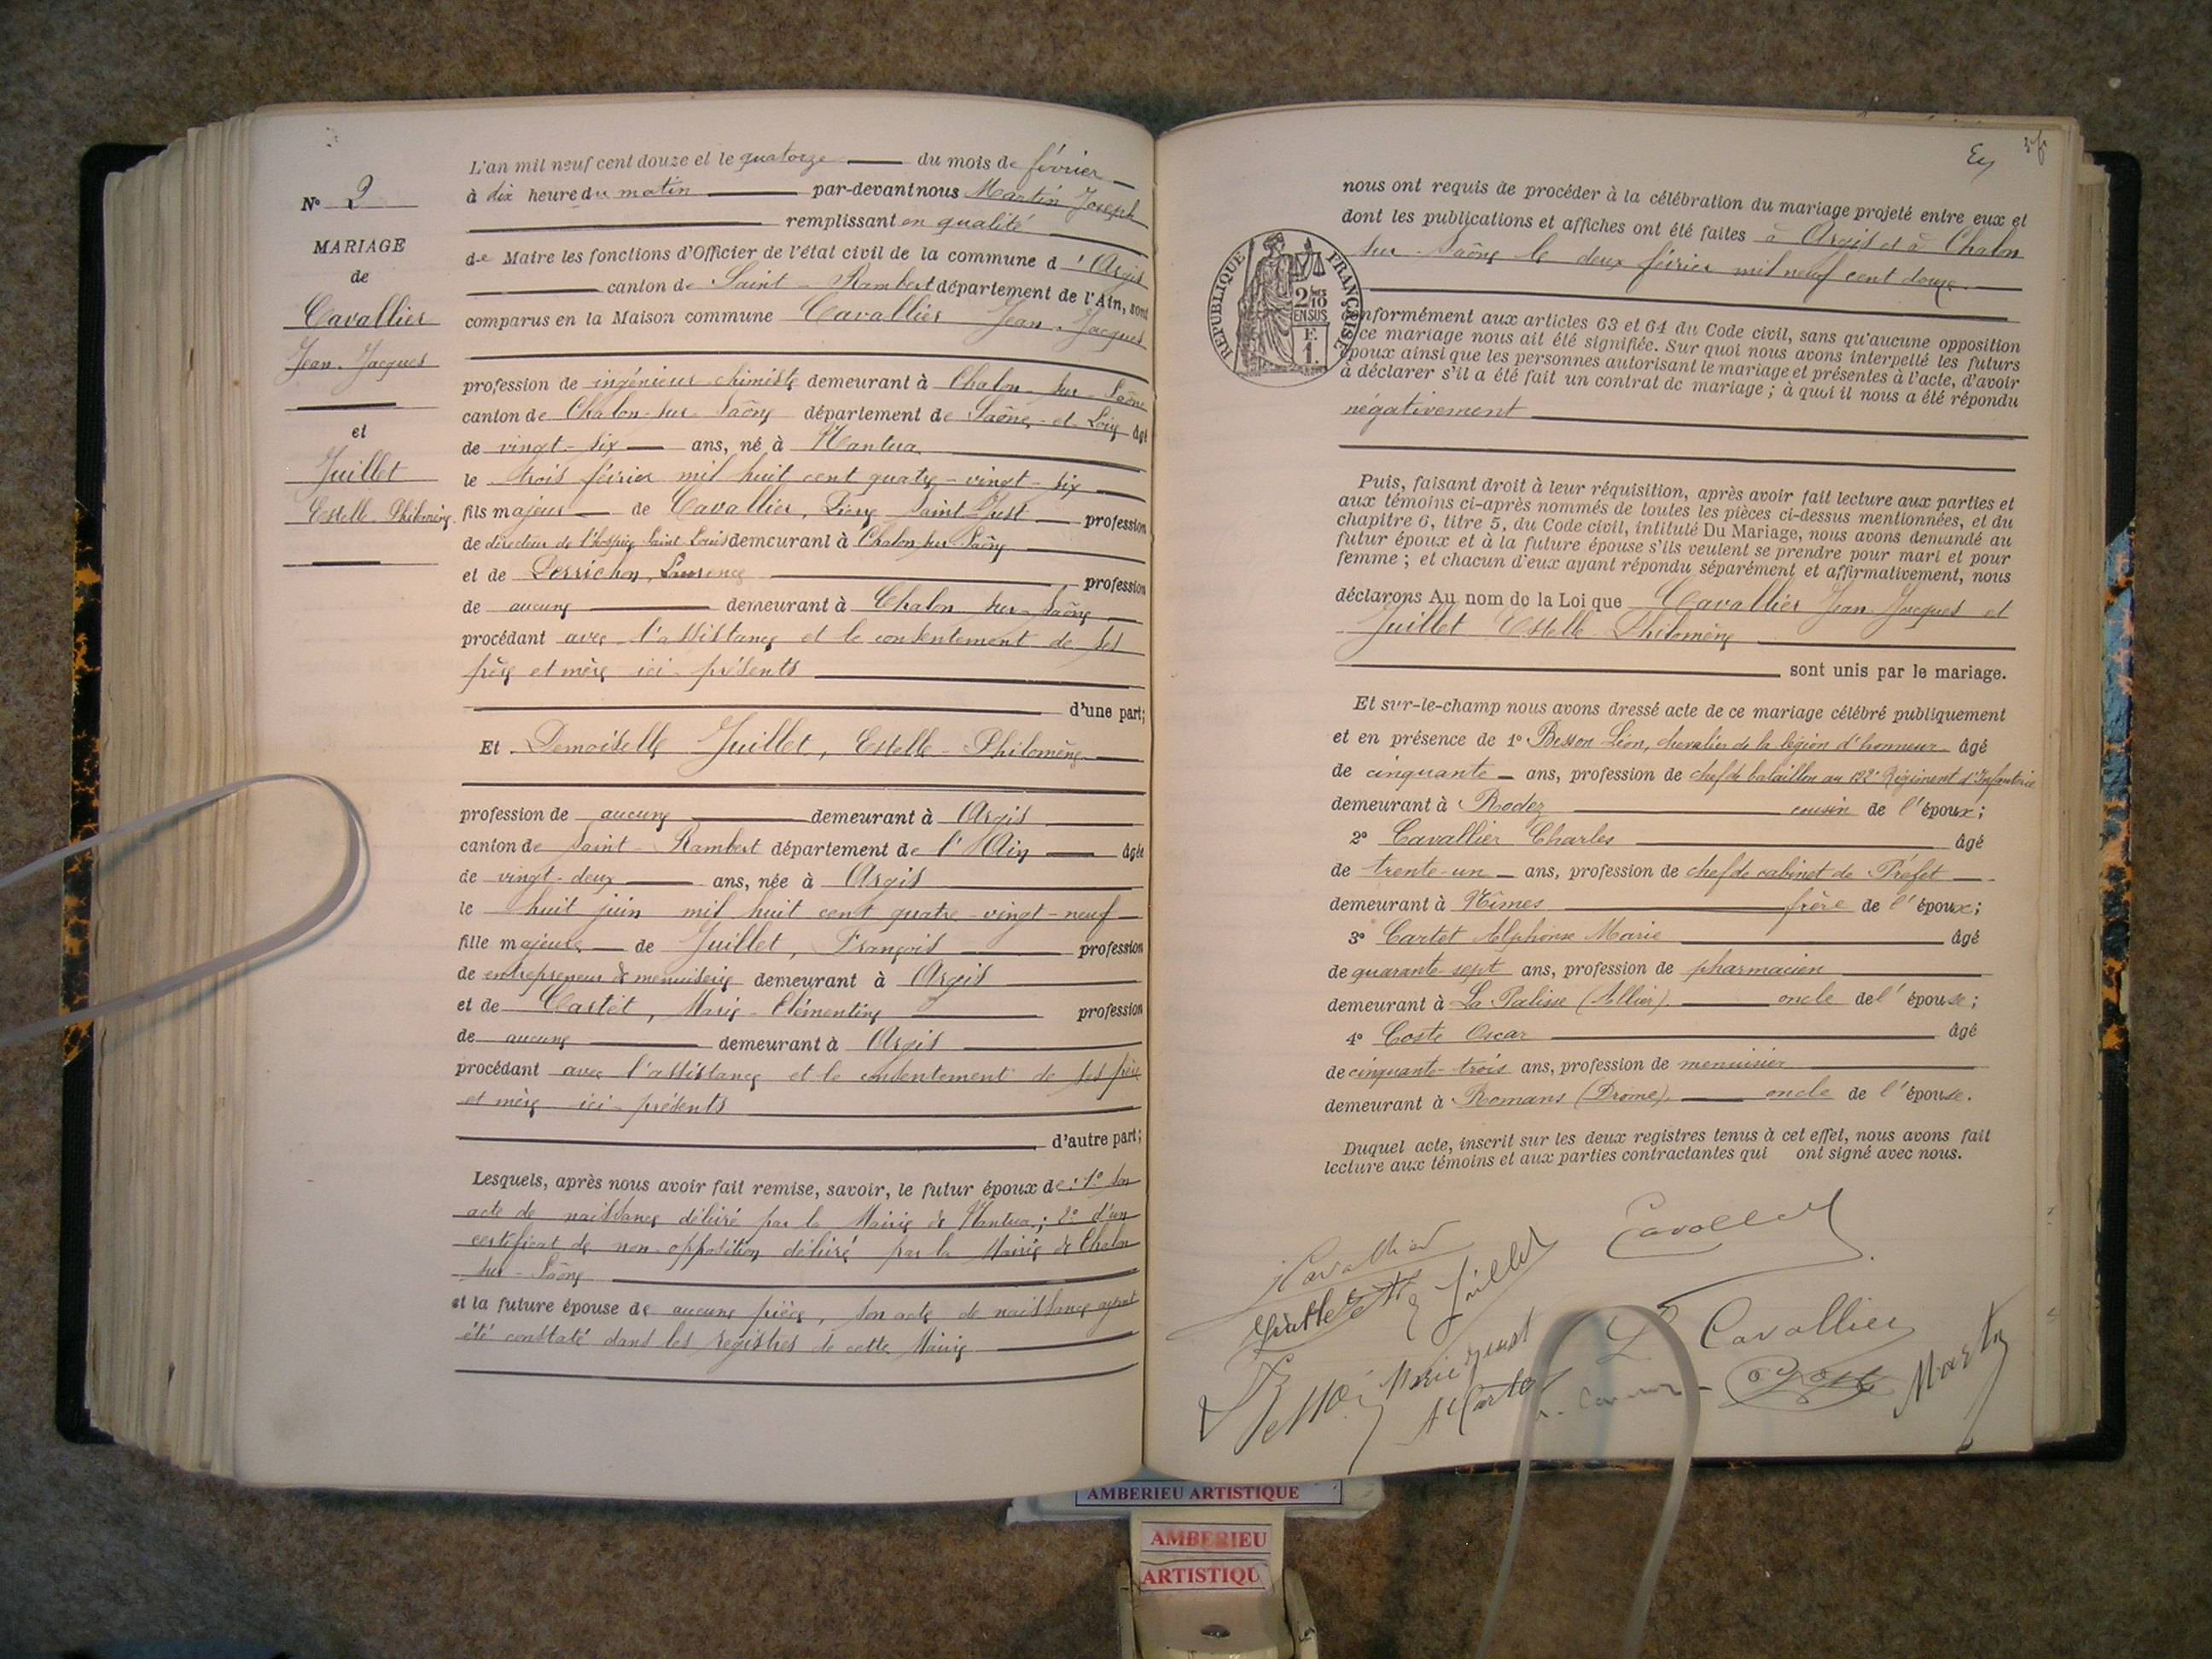 N° 2
MARIAGE
de
Cavallier
Jean-Jacques
et
Juillet
Estelle-Philomène
L'an mil neuf cent douze et le quatorze du mois de février
à dix heure du matin par-devant nous Martin Joseph
remplissant en qualité
de Maire les fonctions d'Officier de l'état civil de la commune d'Argis
canton de Saint-Rambert département de l'Ain, sont
comparus en la Maison commune Cavallier Jean-Jacques
profession de ingénieur-chimiste demeurant à Chalon-sur-Saône
canton de Chalon-sur-Saône département de Saône-et-Loire âgé
de vingt-six ans, né à Nantua
le trois février mil huit cent quatre-vingt-six
fils majeur de Cavallier, Pierre Saint-Just profession
de directeur de l'hospice Saint Louis demeurant à Chalon sur Saône
et de Derrichon, Laurence profession
de aucune demeurant à Chalon sur Saône
procédant avec l'assistance et le consentement de ses
père et mère ici-présents
d'une part;
Et Demoiselle Juillet, Estelle-Philomène
profession de aucune demeurant à Argis
canton de Saint-Rambert département de l'Ain âgée
de vingt-deux ans, née à Argis
le huit juin mil huit cent quatre-vingt-neuf
fille majeure de Juillet, François profession
de entrepreneur de menuiserie demeurant à Argis
et de Cartet, Marie-Clémentine profession
de aucune demeurant à Argis
procédant avec l'assistance et le consentement de ses père
et mère ici-présents
d'autre part;
Lesquels, après nous avoir fait remise, savoir, le futur époux de: 1° son
acte de naissance délivré par la Mairie de Nantua; 2° d'un
certificat de non-opposition délivré par la Mairie de Chalon
sur-Saône
et la future épouse de aucune pièce, son acte de naissance ayant
été constaté dans les registres de cette Mairie
nous ont requis de procéder à la célébration du mariage projeté entre eux et
dont les publications et affiches ont été faites à Argis et à Chalon
sur-Saône le deux février mil neuf cent douze.
REPUBLIQUE FRANÇAISE
2/10
EN SUS
F.
1.
conformément aux articles 63 et 64 du Code civil, sans qu'aucune opposition
à ce mariage nous ait été signifiée. Sur quoi nous avons interpellé les futurs
époux ainsi que les personnes autorisant le mariage et présentes à l'acte, d'avoir
à déclarer s'il a été fait un contrat de mariage; à quoi il nous a été répondu
négativement
Puis, faisant droit à leur réquisition, après avoir fait lecture aux parties et
aux témoins ci-après nommés de toutes les pièces ci-dessus mentionnées, et du
chapitre 6, titre 5, du Code civil, intitulé Du Mariage, nous avons demandé au
futur époux et à la future épouse s'ils veulent se prendre pour mari et pour
femme; et chacun d'eux ayant répondu séparément et affirmativement, nous
déclarons Au nom de la Loi que Cavallier Jean-Jacques et
Juillet Estelle-Philomène
sont unis par le mariage.
Et sur-le-champ nous avons dressé acte de ce mariage célébré publiquement
et en présence de 1° Besson Léon, chevalier de la légion d'honneur âgé
de cinquante ans, profession de chef de bataillon au 122e Régiment d'Infanterie
demeurant à Rodez cousin de l'époux;
2° Cavallier Charles âgé
de trente-un ans, profession de chef de cabinet de Préfet
demeurant à Nîmes frère de l'époux;
3° Cartet Alphonse Marie âgé
de quarante-sept ans, profession de pharmacien
demeurant à La Palisse (Allier) oncle de l'épouse;
4° Coste Oscar âgé
de cinquante-trois ans, profession de menuisier
demeurant à Romans (Drôme) oncle de l'épouse.
Duquel acte, inscrit sur les deux registres tenus à cet effet, nous avons fait
lecture aux témoins et aux parties contractantes qui ont signé avec nous.
Cavallier
E Juillet
Cavallier
A Cartet
Martin
AMBERIEU ARTISTIQUE
AMBERIEU
ARTISTIQU